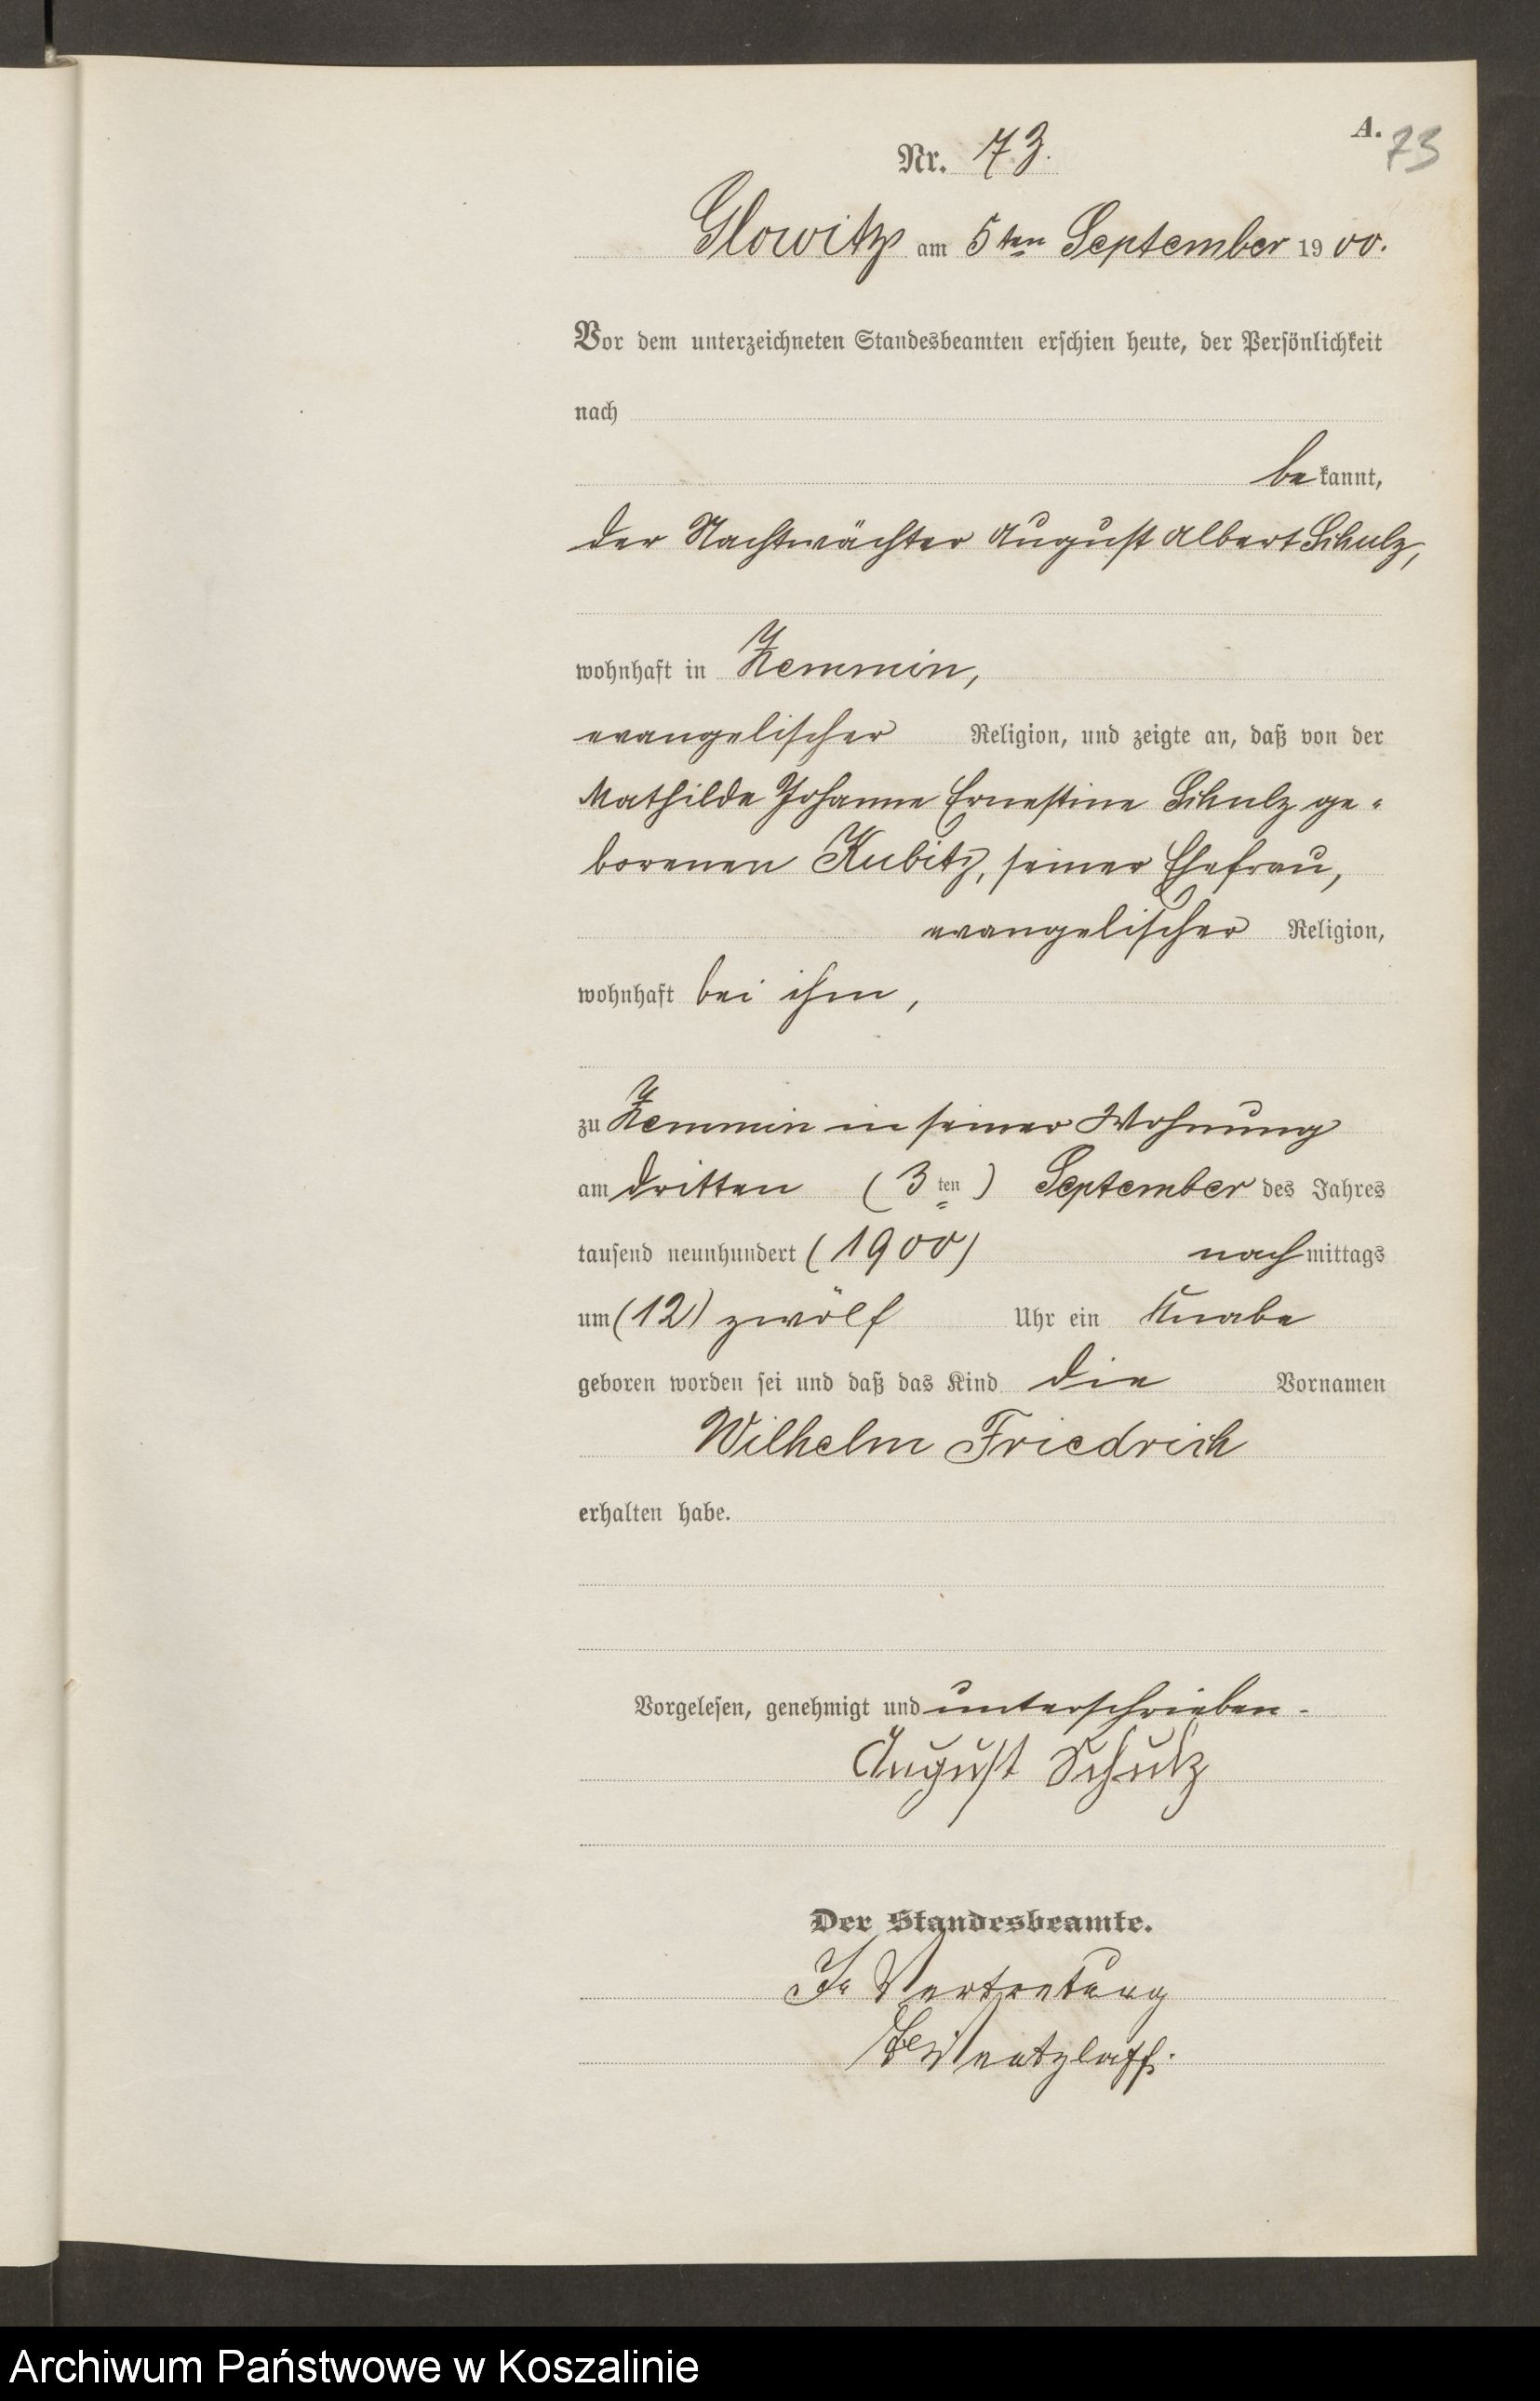 A.
73
Nr. 73.
Glowitz am 5ten September 1900.
Vor dem unterzeichneten Standesbeamten erschien heute, der Persönlichkeit
nach
bekannt,
der Nachtwächter August Albert Schulz,
wohnhaft in Zemmin,
evangelischer Religion, und zeigte an, daß von der
Mathilde Johanne Ernestine Schulz ge-
borenen Kubitz, seiner Ehefrau,
evangelischer Religion,
wohnhaft bei ihm,
zu Zemmin in seiner Wohnung
am dritten (3ten) September des Jahres
tausend neunhundert (1900) nachmittags
um (12) zwölf Uhr ein Knabe
geboren worden sei und daß das Kind die Vornamen
Wilhelm Friedrich
erhalten habe.
Vorgelesen, genehmigt und unterschrieben.
August Schulz
Der Standesbeamte.
In Vertretung
Wentzlaff.
Archiwum Państwowe w Koszalinie